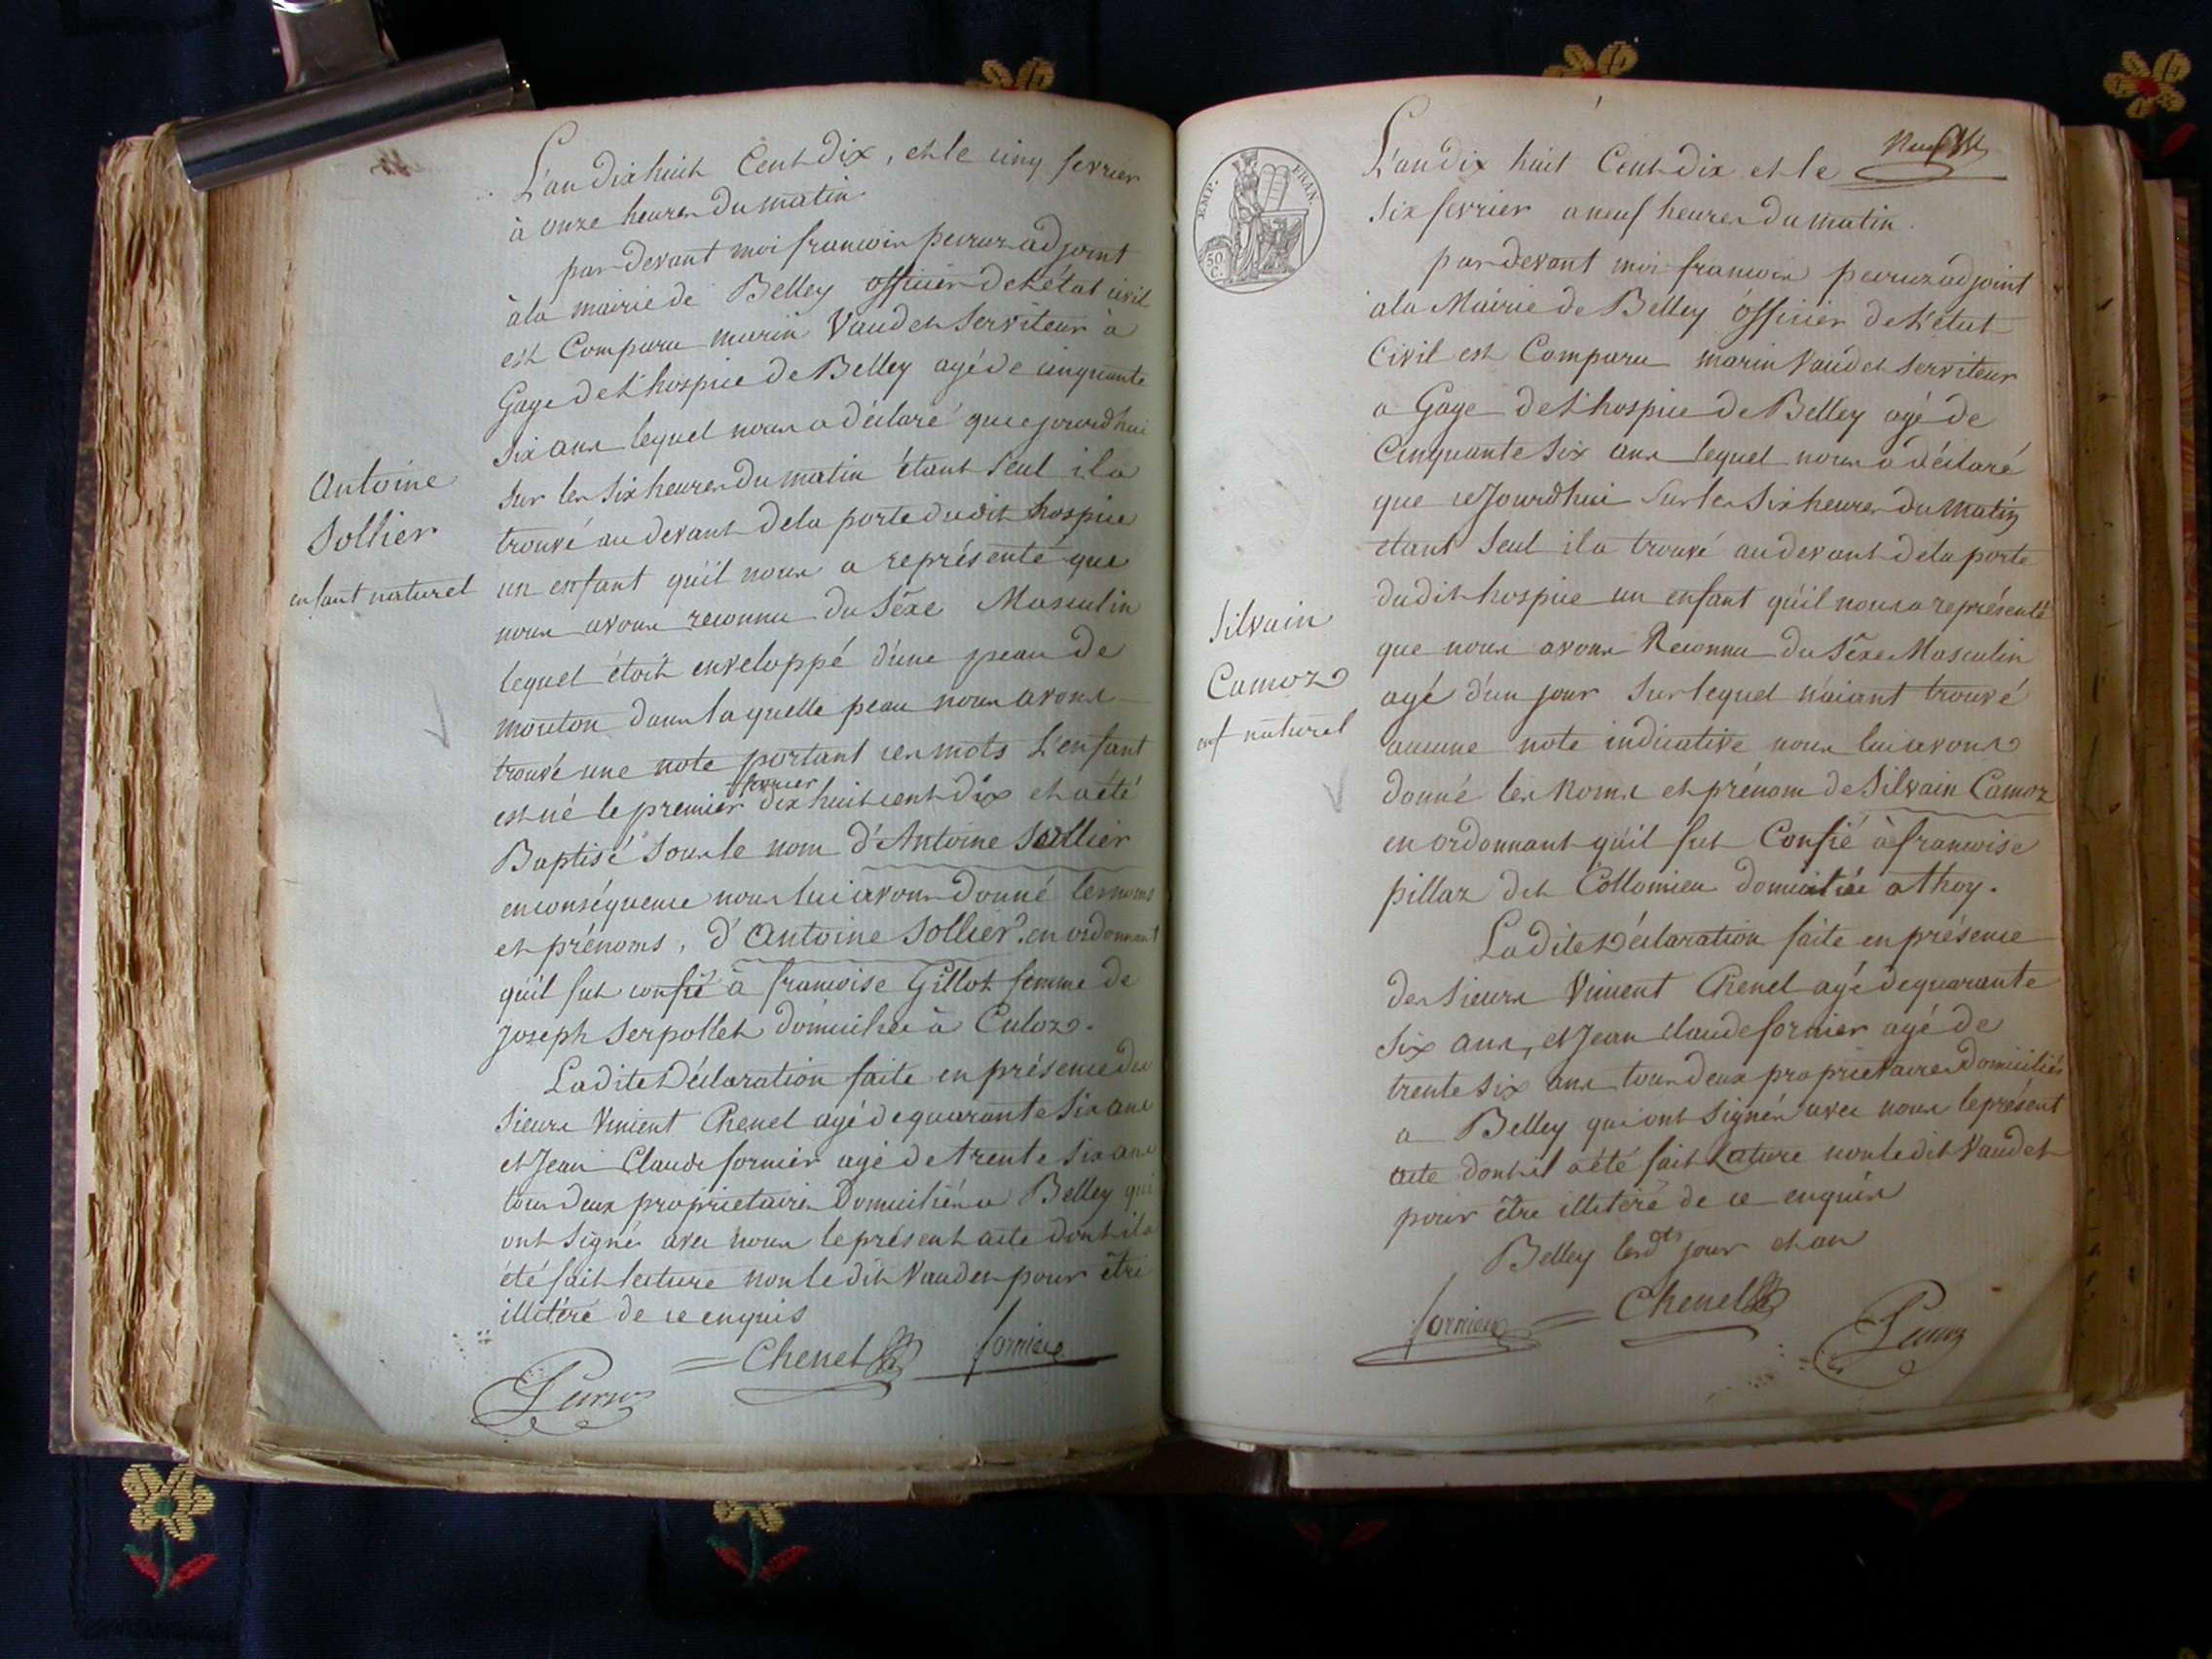 L'an dix huit Cent dix, et le cinq fevrier
à onze heures du matin.
par devant moi francois peuruz adjoint
à la mairie de Belley officier de l'état civil
est Comparu marin Vaudet Serviteur à
Gage de l'hospice de Belley agé de cinquante
six ans lequel nous a déclaré que ce jourdhui
sur les six heures du matin étant seul il a
trouvé au devant de la porte dudit hospice
un enfant qu'il nous a représenté que
nous avons reconnu du Séxe Masculin
lequel étoit enveloppé d'une peau de
mouton dans laquelle peau nous avons
trouvé une note portant ces mots L'enfant
fevrier
est né le premier dix huit cent dix et a été
Baptisé sous le nom d'Antoine Sollier
en conséquence nous lui avons donné les noms
et prénoms, d'Antoine Sollier. en ordonnant
qu'il fut confié à francoise Gillot femme de
Joseph Serpollet domiciliée à Culoz.
La dite Déclaration faite en présence des
Sieurs Vincent Chenel agé de quarante six ans
et Jean Claude fornier agé de trente six ans
tous deux proprietaires Domiciliés a Belley qui
ont signé avec nous le présent acte dont il a
été fait lecture non le dit Vaudet pour être
illitéré de ce enquis
Chenel fornier
Antoine
Sollier
enfant naturel
EMP. FRAN.
50 C.
L'an dix huit Cent dix et le
six fevrier a neuf heures du matin.
par devant moi francois peuruz adjoint
a la Mairie de Belley officier de l'état
Civil est Comparu marin Vaudet Serviteur
a Gage de l'hospice de Belley agé de
Cinquante six ans lequel nous a déclaré
que ce Jourdhui sur les six heures du matin
etant seul il a trouvé au devant de la porte
du dit hospice un enfant qu'il nous a représenté
que nous avons Reconnu du Séxe Masculin
agé d'un jour sur lequel n'aiant trouvé
aucune note indicative nous lui avons
donné les Noms et prénom de Silvain Camoz
en ordonnant qu'il fut Confié à francoise
pillaz det Collomieu domiciliée a thoy.
La dite Déclaration faite en présence
des Sieurs Vincent Chenel agé de quarante
six ans, et Jean Claude fornier agé de
trente six ans tous deux proprietaires Domiciliés
a Belley qui ont signés avec nous le présent
acte dont il a été fait Lecture non le dit Vaudet
pour être illitéré de ce enquis
Belley les dts jour et an
fornier Chenel
Silvain
Camoz
enf naturel